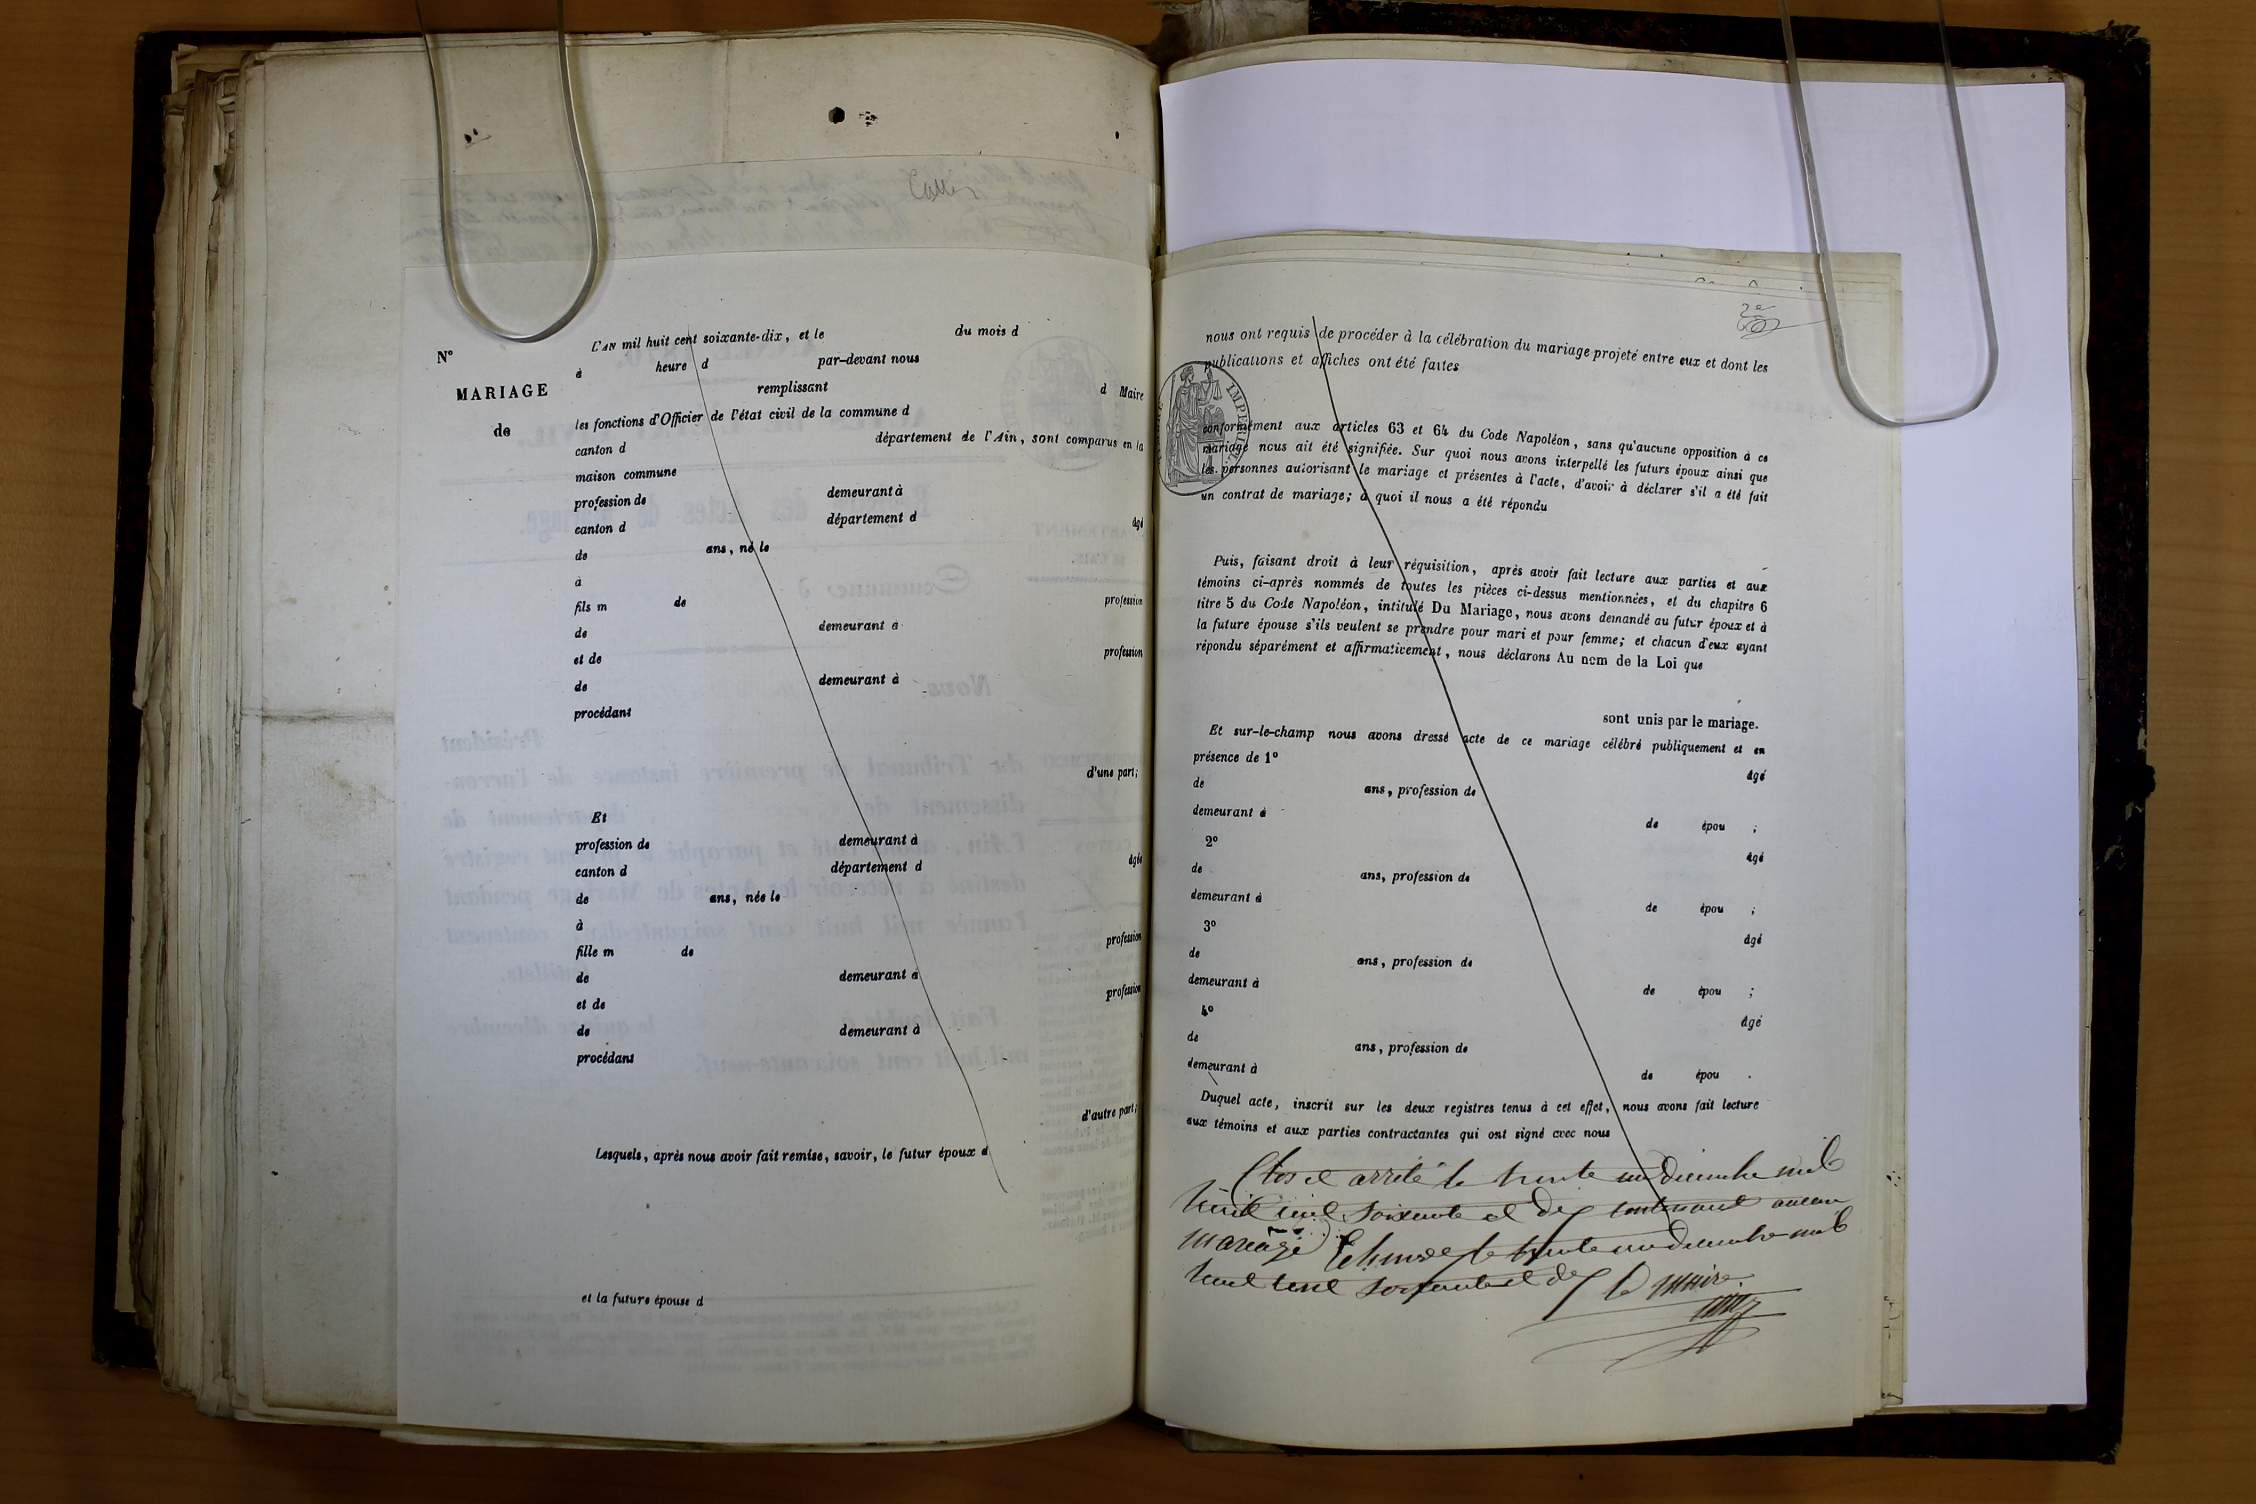 N°
MARIAGE
de
L'AN mil huit cent soixante-dix, et le du mois d
à heure d par-devant nous
remplissant d Maire
les fonctions d'Officier de l'état civil de la commune d
canton d département de l'Ain, sont comparus en la
maison commune
profession de demeurant à
canton d département d âgé
de ans, né le
à
fils m de profession
de demeurant à
et de profession
de demeurant à
procédant
d'une part;
Et
profession de demeurant à
canton d département d âgée
de ans, née le
à
fille m de profession
de demeurant à
et de profession
de demeurant à
procédant
d'autre part;
Lesquels, après nous avoir fait remise, savoir, le futur époux d
et la future épouse d
2e
nous ont requis de procéder à la célébration du mariage projeté entre eux et dont les
publications et affiches ont été faites
IMPERIAL
conformément aux articles 63 et 64 du Code Napoléon, sans qu'aucune opposition à ce
mariage nous ait été signifiée. Sur quoi nous avons interpellé les futurs époux ainsi que
les personnes autorisant le mariage et présentes à l'acte, d'avoir à déclarer s'il a été fait
un contrat de mariage; à quoi il nous a été répondu
Puis, faisant droit à leur réquisition, après avoir fait lecture aux parties et aux
témoins ci-après nommés de toutes les pièces ci-dessus mentionnées, et du chapitre 6
titre 5 du Code Napoléon, intitulé Du Mariage, nous avons demandé au futur époux et à
la future épouse s'ils veulent se prendre pour mari et pour femme; et chacun d'eux ayant
répondu séparément et affirmativement, nous déclarons Au nom de la Loi que
sont unis par le mariage.
Et sur-le-champ nous avons dressé acte de ce mariage célébré publiquement et en
présence de 1° âgé
de ans, profession de
demeurant à de épou ;
2° âgé
de ans, profession de
demeurant à de épou ;
3° âgé
de ans, profession de
demeurant à de épou ;
4° âgé
de ans, profession de
demeurant à de épou .
Duquel acte, inscrit sur les deux registres tenus à cet effet, nous avons fait lecture
aux témoins et aux parties contractantes qui ont signé avec nous
Clos et arrêté le trente un Decembre mil
huit cent soixante et dix contenant aucun
mariage le trente un decembre mil
huit cent soixante et dix le maire.